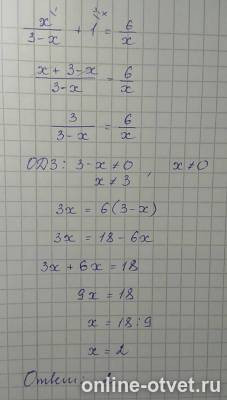 x/(3-x) + 1 = 6/x
(x+3-x)/(3-x) = 6/x
3/(3-x) = 6/x
ОДЗ: 3-x≠0, x≠0
x≠3
3x = 6(3-x)
3x = 18-6x
3x+6x=18
9x=18
x=18:9
x=2
Ответ:
online-otvet.ru